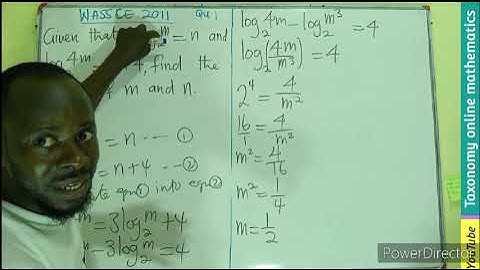 WASSCE 2011 Qu 1
Given that m = n and
log 4m 4, find the
4 m and n.
= n --- ①
= n+4 --②
eqn① into eqn②
m = 3log₂m + 4
- 3log₂m = 4
log₂4m - log₂m³ = 4
log₂(4m/m³) = 4
2⁴ = 4/m²
16/1 = 4/m²
m² = 4/16
m² = 1/4
m = 1/2
Taxonomy online mathematics
YouTube
PowerDirector